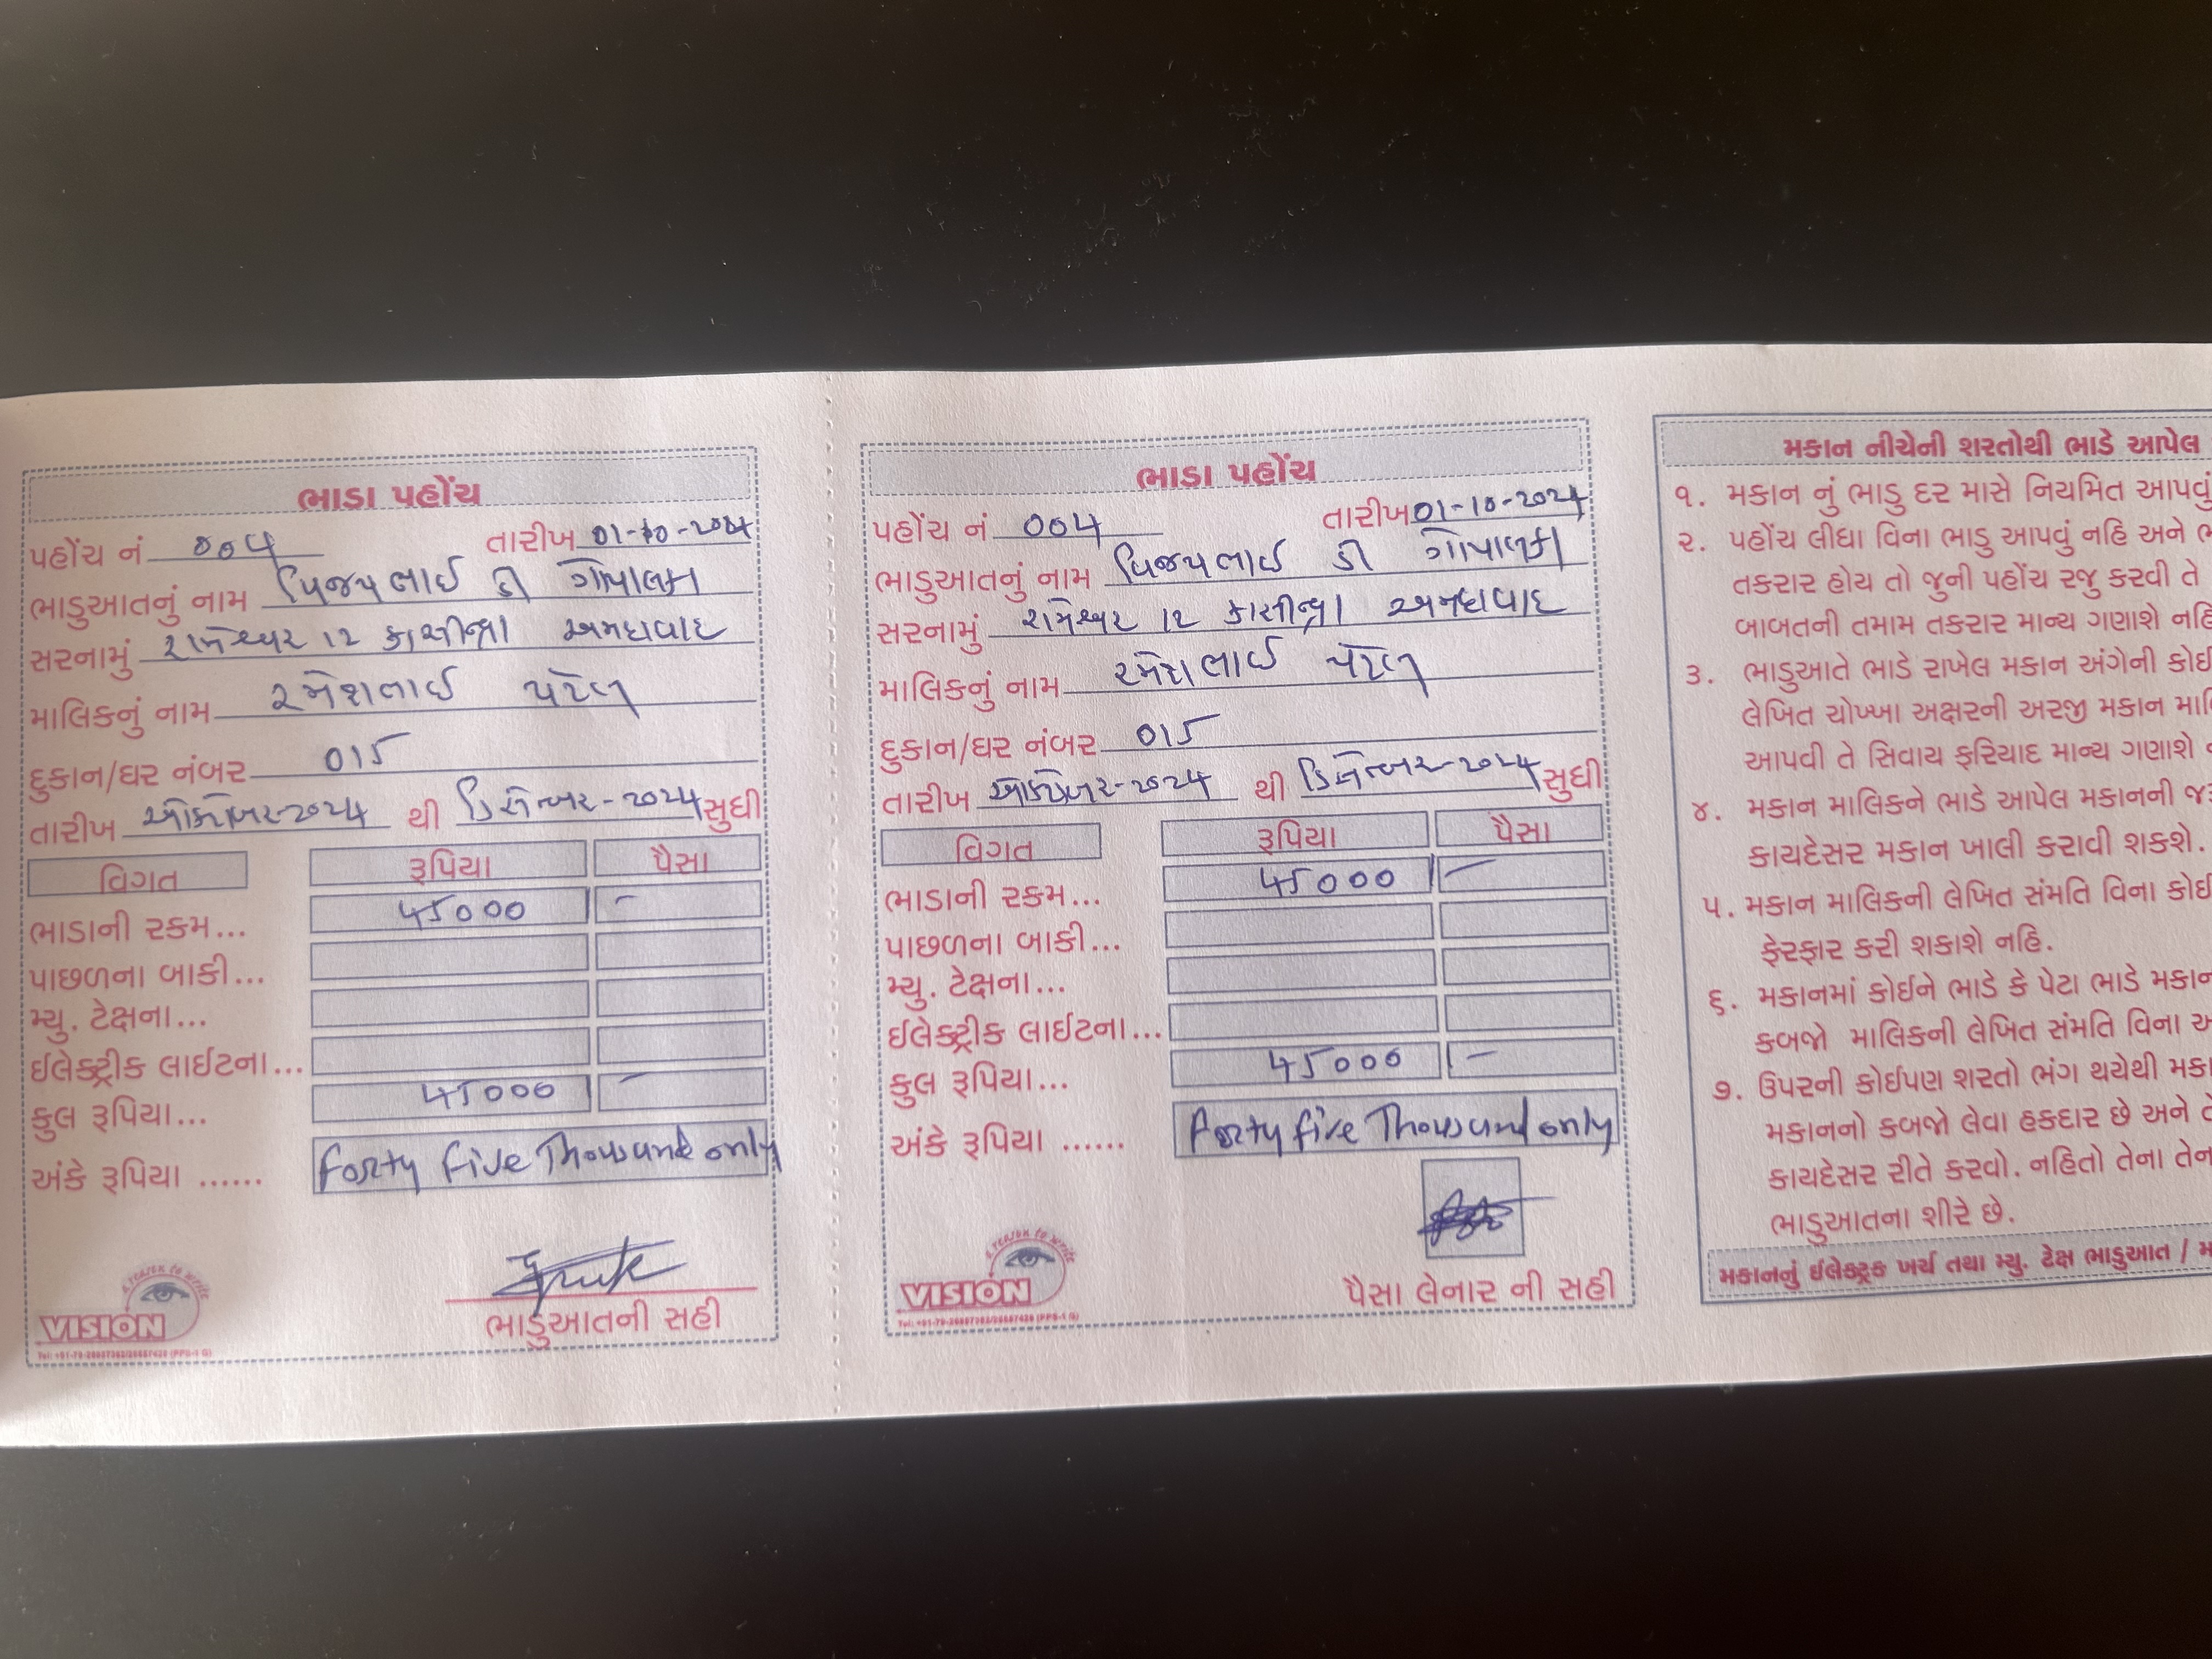 ભાડા પહોંચ
પહોંચ નં ૦૦૫ તારીખ ૦૧-૧૦-૨૦૨૫
ભાડુઆતનું નામ વિજયભાઈ ડી
સરનામું અમદાવાદ
માલિકનું નામ રમેશભાઈ પટેલ
દુકાન/ઘર નંબર ૦૧૬
તારીખ ઓક્ટોમ્બર-૨૦૨૫ થી ડિસેમ્બર-૨૦૨૫ સુધી
વિગત રૂપિયા પૈસા
ભાડાની રકમ... ૪૫૦૦૦/-
પાછળના બાકી...
મ્યુ. ટેક્ષના...
ઈલેક્ટ્રીક લાઈટના...
કુલ રૂપિયા... ૪૫૦૦૦/-
અંકે રૂપિયા ...... Forty five Thousand only
VISION
ભાડુઆતની સહી
ભાડા પહોંચ
પહોંચ નં ૦૦૫ તારીખ ૦૧-૧૦-૨૦૨૫
ભાડુઆતનું નામ વિજયભાઈ ડી
સરનામું અમદાવાદ
માલિકનું નામ રમેશભાઈ પટેલ
દુકાન/ઘર નંબર ૦૧૬
તારીખ ઓક્ટોમ્બર-૨૦૨૫ થી ડિસેમ્બર-૨૦૨૫ સુધી
વિગત રૂપિયા પૈસા
ભાડાની રકમ... ૪૫૦૦૦/-
પાછળના બાકી...
મ્યુ. ટેક્ષના...
ઈલેક્ટ્રીક લાઈટના...
કુલ રૂપિયા... ૪૫૦૦૦/-
અંકે રૂપિયા ...... Forty five Thousand only
VISION
પૈસા લેનાર ની સહી
મકાન નીચેની શરતોથી ભાડે આપેલ
૧. મકાન નું ભાડુ દર માસે નિયમિત આપવું
૨. પહોંચ લીધા વિના ભાડુ આપવું નહિ અને
તકરાર હોય તો જુની પહોંચ રજુ કરવી તે
બાબતની તમામ તકરાર માન્ય ગણાશે
૩. ભાડુઆતે ભાડે રાખેલ મકાન અંગેની
લેખિત ચોખ્ખા અક્ષરની અરજી મકાન
આપવી તે સિવાય ફરિયાદ માન્ય ગણાશે
૪. મકાન માલિકને ભાડે આપેલ મકાનની
કાયદેસર મકાન ખાલી કરાવી શકશે.
૫. મકાન માલિકની લેખિત સંમતિ વિના
ફેરફાર કરી શકાશે નહિ.
૬. મકાનમાં કોઈને ભાડે કે પેટા ભાડે
કબજો માલિકની લેખિત સંમતિ વિના
૭. ઉપરની કોઈપણ શરતો ભંગ થયેથી
મકાનનો કબજો લેવા હકદાર છે અને
કાયદેસર રીતે કરવો. નહિતો તેના
ભાડુઆતના શીરે છે.
મકાનનું ઈલેક્ટ્રીક ખર્ચ તથા મ્યુ. ટેક્ષ ભાડુઆત /